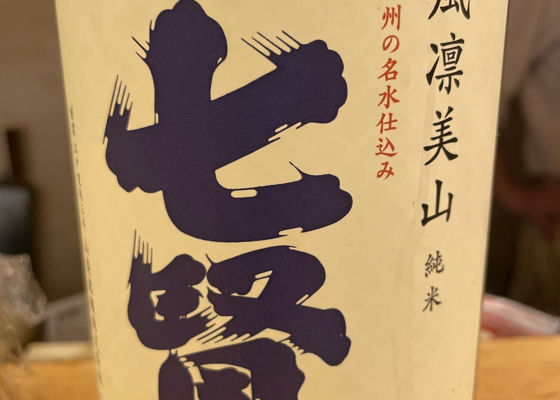 風凛美山
純米
州の名水仕込み
七賢